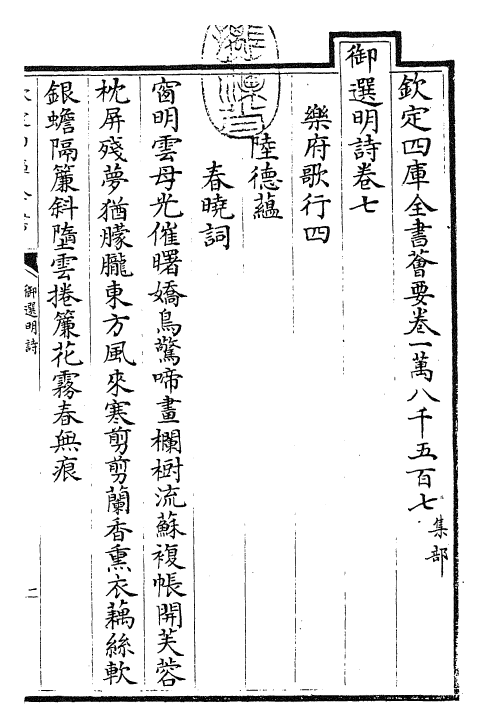 欽定四庫全書薈要卷一萬八千五百七 集部
御選明詩卷七
樂府歌行四
陸德蘊
春曉詞
窗明雲母光催曙嬌鳥驚啼畫欄樹流蘇複帳開芙蓉
枕屏殘夢猶朦朧東方風來寒剪剪蘭香熏衣藕絲軟
銀蟾隔簾斜墮雲捲簾花霧春無痕
御選明詩